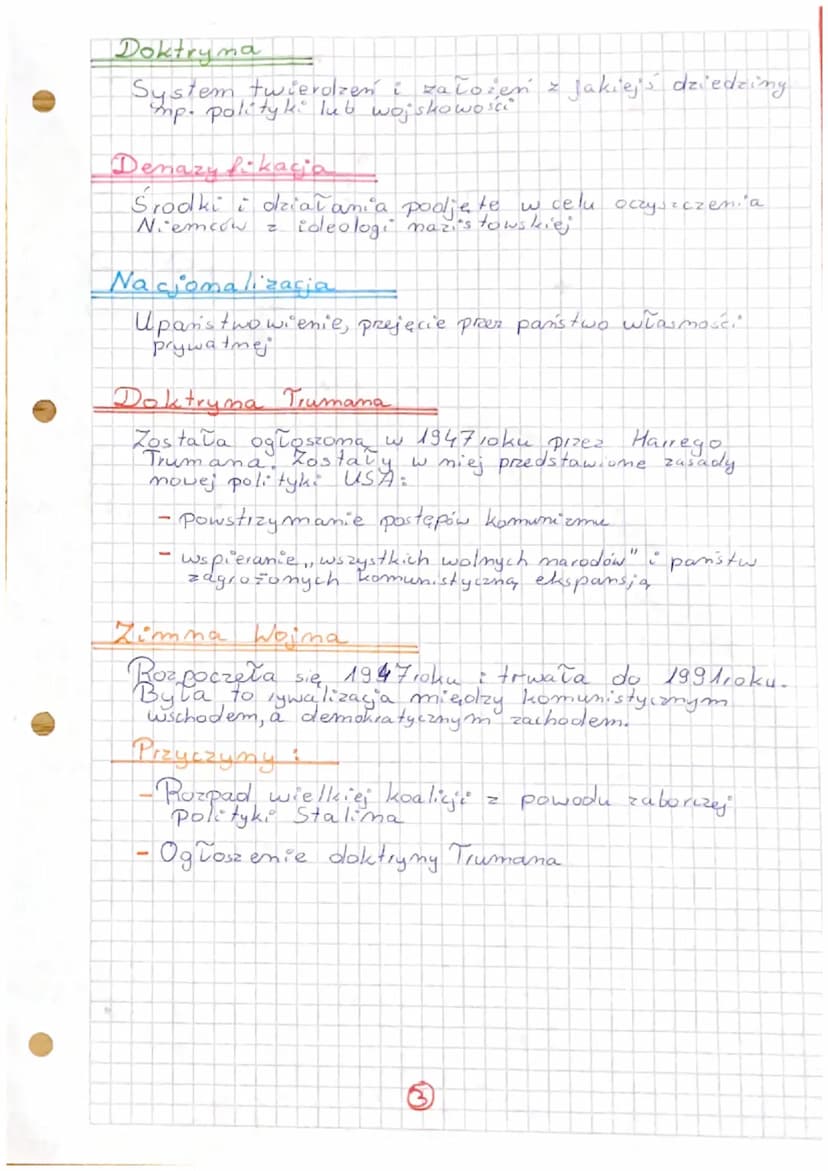 Doktryna
System twierdzeń i założeń z jakiejś dziedziny
np. polityki lub wojskowości
Denazyfikacja
Środki i działania podjęte w celu oczyszczenia
Niemców z ideologi nazistowskiej
Nacjonalizacja
Upaństwowienie, przejęcie przez państwo własności
prywatnej
Doktryna Trumana
Została ogłoszona w 1947 roku przez Harrego
Trumana. Zostały w niej przedstawione zasady
nowej polityki USA:
- powstrzymanie postępów komunizmu
- wspieranie „wszystkich wolnych narodów" i państw
zagrożonych komunistyczną ekspansją
Zimna Wojna
Rozpoczęła się 1947 roku i trwała do 1991 roku.
Była to rywalizacja między komunistycznym
wschodem, a demokratycznym zachodem.
Przyczyny:
- Rozpad wielkiej koalicji z powodu zaborczej
polityki Stalina
- Ogłoszenie doktryny Trumana
3